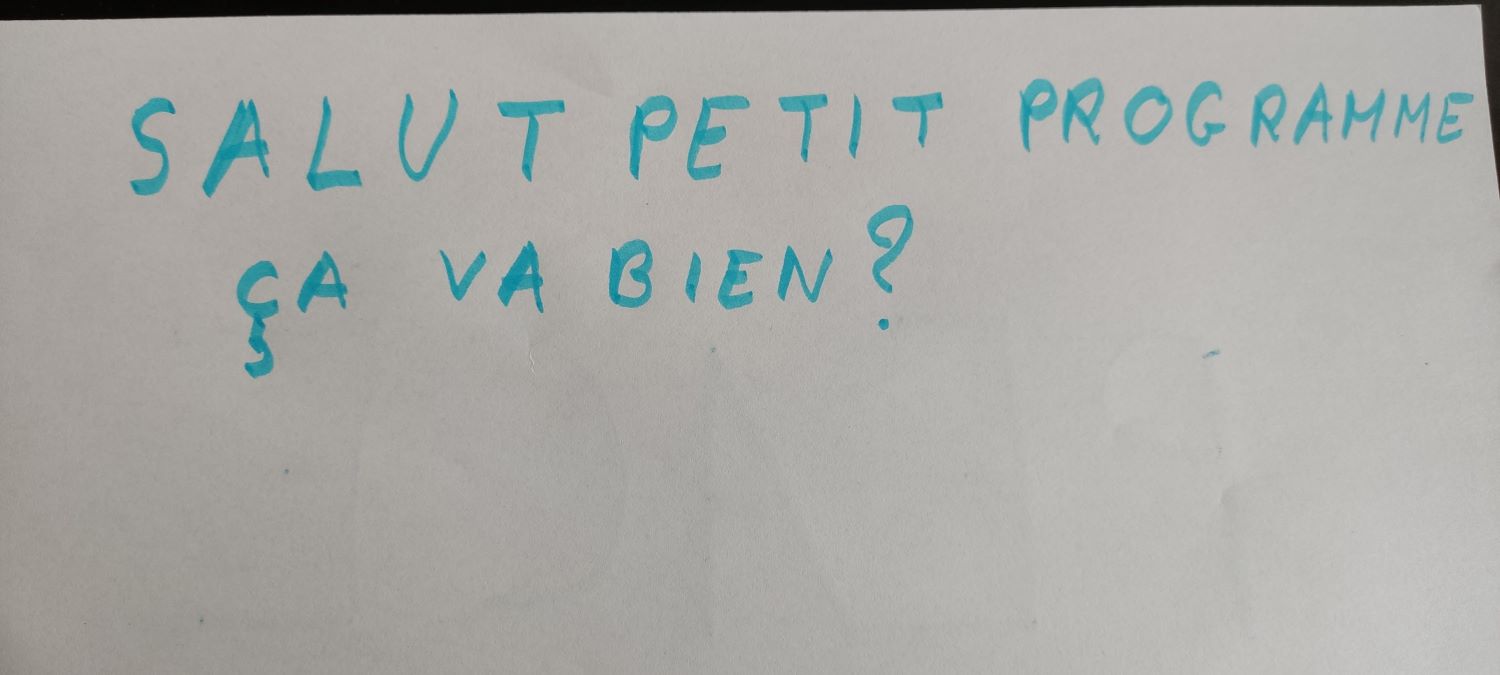 SALUT PETIT PROGRAMME
ÇA VA BIEN?